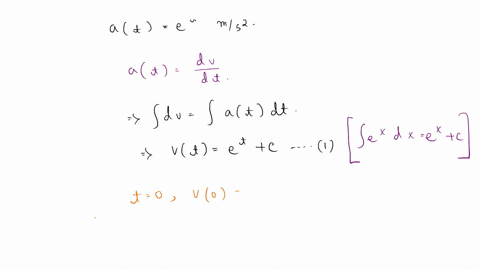 a(t) = e^u m/s².
a(t) = dv/dt.
=> ∫dv = ∫ a(t) dt.
=> v(t) = e^t + c ....(1) [∫e^x dx = e^x + c]
t=0, v(0) -